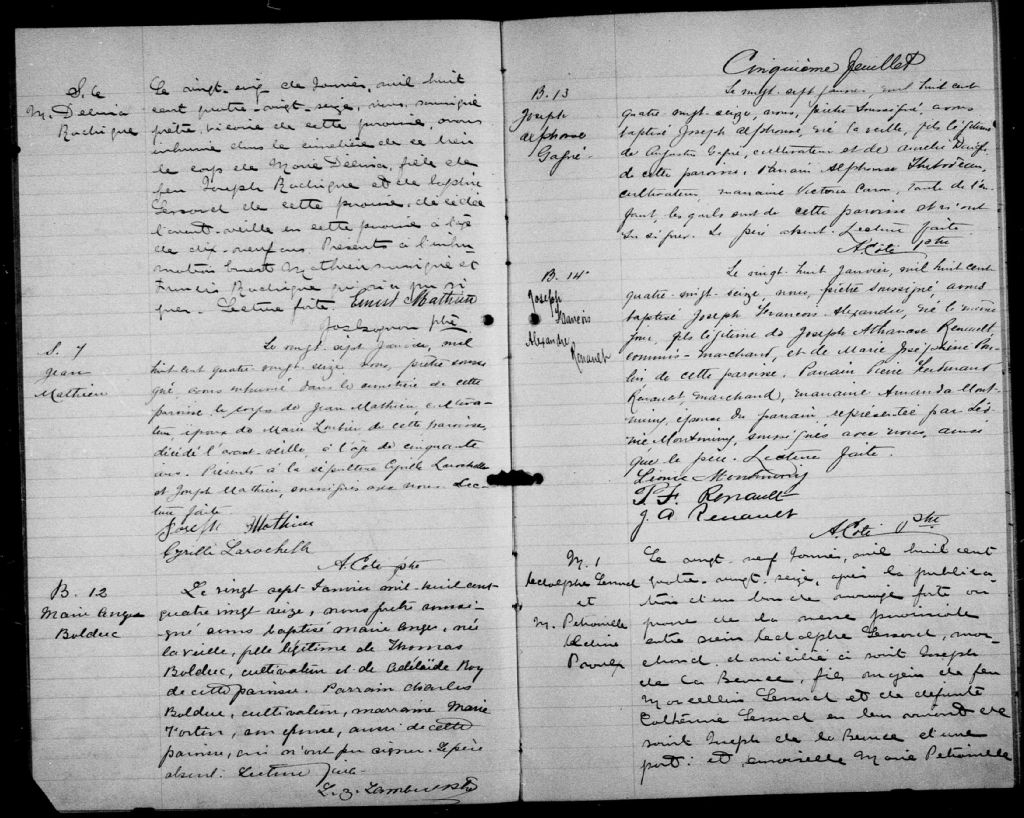 S. 6
M. Delvina
Rodrigue
Le vingt-six de Janvier, mil huit
cent quatre-vingt-seize, nous, soussigné
prêtre, vicaire de cette paroisse, avons
inhumé dans le cimetière de ce lieu
le corps de Marie Delvina, fille de
feu Joseph Rodrigue et de
Lessard de cette paroisse, décédée
l'avant-veille en cette paroisse à l'âge
de dix-neuf ans. Présents à l'inhu-
mation Ernest Mathieu soussigné et
Francis Rodrigue qui n'a pu si-
gner. Lecture faite. Ernest Mathieu
ptre
S. 7
Jean
Mathieu
Le vingt-sept Janvier, mil
huit cent quatre-vingt-seize, nous, prêtre soussi-
gné, avons inhumé dans le cimetière de cette
paroisse le corps de Jean Mathieu, cultiva-
teur, époux de Marie de cette paroisse,
décédé l'avant-veille, à l'âge de cinquante
ans. Présents à la sépulture Cyrille Larochelle
et Joseph Mathieu, soussignés avec nous. Lec-
ture faite
Joseph Mathieu
Cyrille Larochelle
A. Coté ptre
B. 12
Marie Ange
Bolduc
Le vingt sept Janvier mil-huit cent
quatre vingt seize, nous prêtre soussi-
gné avons baptisé Marie Ange, née
la veille, fille légitime de Thomas
Bolduc, cultivateur et de Adélaïde Roy
de cette paroisse. Parrain Charles
Bolduc, cultivateur, marraine Marie
Fortin, son épouse, aussi de cette
paroisse, qui n'ont pu signer. Le père
absent. Lecture faite
Cinquième feuillet
B. 13
Joseph
Alphonse
Gagné
Le vingt-sept janvier, mil huit cent
quatre-vingt-seize, nous, prêtre soussigné, avons
baptisé Joseph Alphonse, né la veille, fils légitime
de Augustin Gagné, cultivateur et de Aurélie
de cette paroisse. Parrain Alphonse Thibodeau,
cultivateur, marraine Victoria Caron, tante de l'en-
fant, lesquels sont de cette paroisse et n'ont
su signer. Le père absent. Lecture faite
A. Coté Ptre
B. 14
Joseph
François
Alexandre
Renault
Le vingt-huit Janvier, mil huit cent
quatre-vingt-seize, nous, prêtre soussigné, avons
baptisé Joseph François Alexandre, né le même
jour, fils légitime de Joseph Athanase Renault
commis-marchand, et de Marie Joséphine Pou-
lin de cette paroisse. Parrain Pierre Ferdinand
Renault, marchand, marraine Amanda Mont-
miny, épouse du parrain, représentée par Léo-
nie Montminy, soussignés avec nous, ainsi
que le père. Lecture faite.
Léonie Montminy
P. F. Renault
J. A. Renault
A. Coté Ptre
M. 1
Lessard
et
M. Petronille
Poulin
Le vingt-neuf Janvier, mil huit cent
quatre-vingt-seize, après la publica-
tion d'un ban de mariage faite au
prône de la messe paroissiale
entre sieur Lessard, mar-
chand, domicilié à saint Joseph
de la Beauce, fils majeur de feu
Marcellin Lessard et de défunte
Catherine Lessard en leur vivant de
saint Joseph de la Beauce d'une
part: et demoiselle Marie Petronille